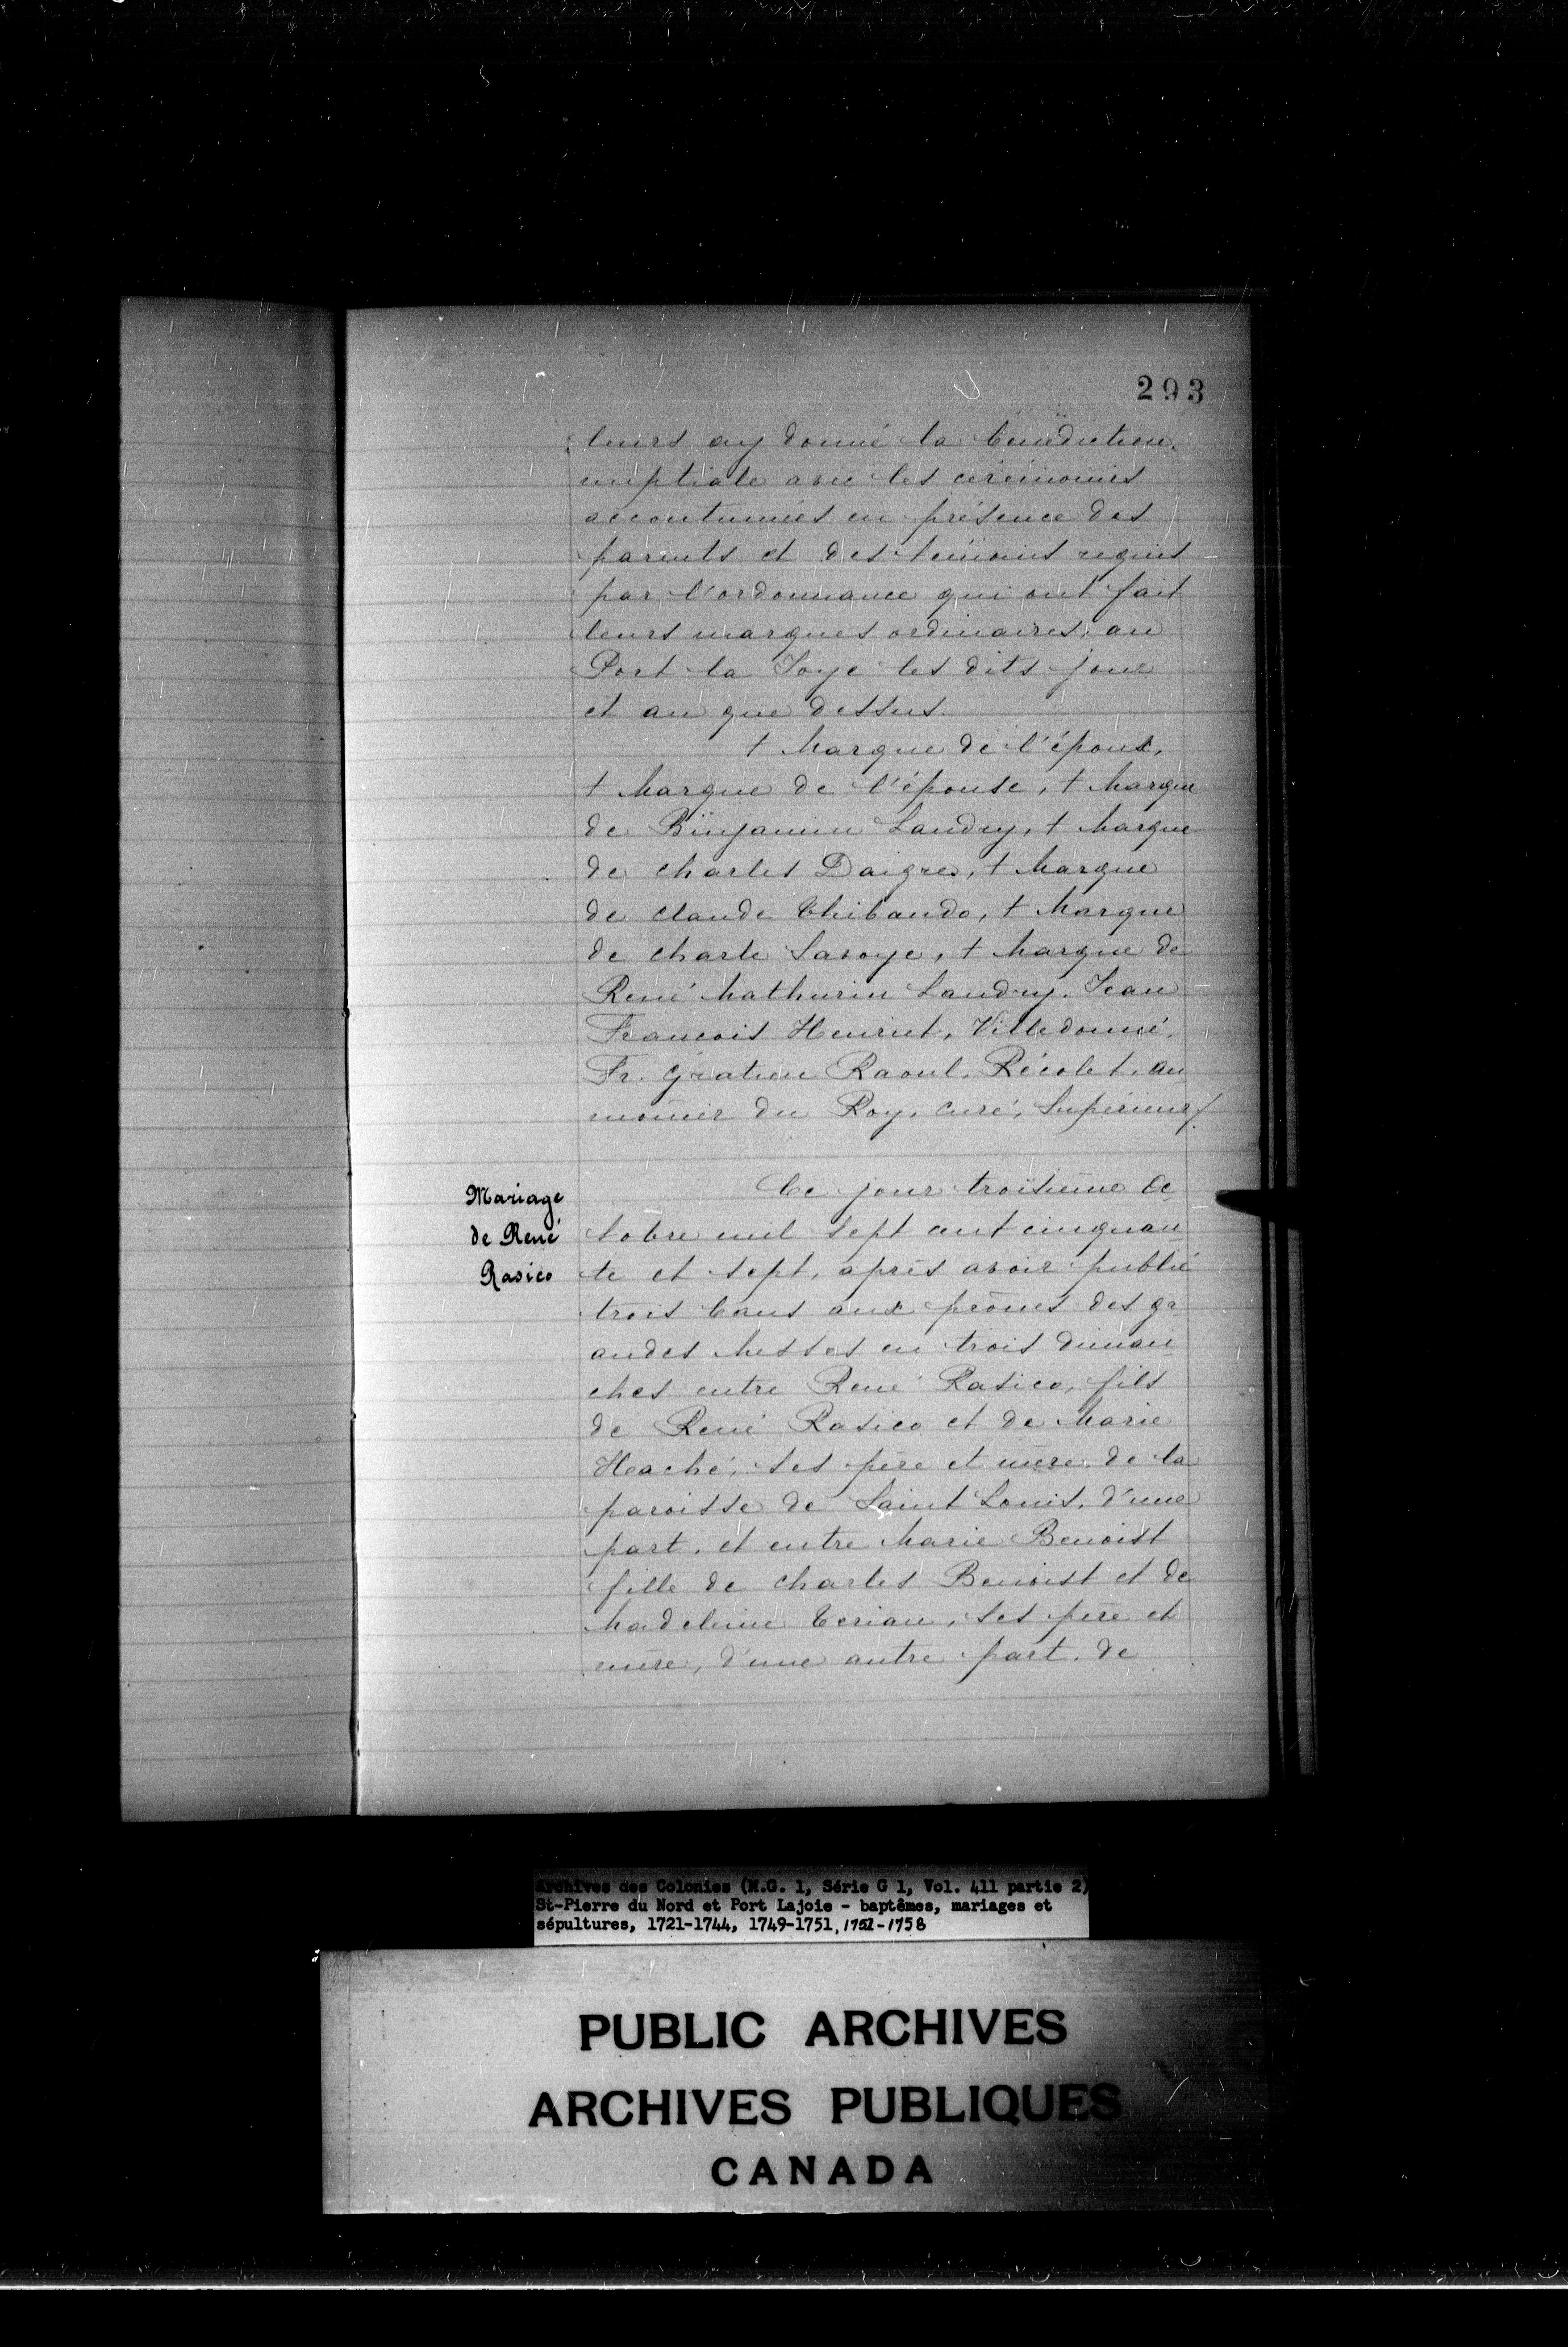 293
leurs ay donné la bénédiction
nuptiale avec les cérémonies
accoutumées en présence des
parents et des témoins requis
par l'ordonnance qui ont fait
leurs marques ordinaires, au
Port la Joye les dits jour
et an que dessus.
† Marque de l'époux,
† Marque de l'épouse, † Marque
de Binjamin Landry, † Marque
de Charles Daigre, † Marque
de Claude Thibaudo, † Marque
de Charle Savoye, † Marque de
René Mathurin Landry. Jean
Francois Henriet, Villedonné,
Fr. Gratien Raoul, Récolet, au
mônier du Roy, curé, Supérieur/.
Mariage
de René
Rasico
Ce jour troisième Oc
tobre mil sept cent cinquan
te et sept, après avoir publié
trois bans aux prônes des gr
andes Messes en trois diman
ches entre René Rasico, fils
de René Rasico et de Marie
Heaché, ses père et mère, de la
paroisse de Saint Louis, d'une
part, et entre Marie Benoist
fille de Charles Benoist et de
Madeleine Terian, ses père et
mère, d'une autre part, de
Archives des Colonies (M.G. 1, Série G 1, Vol. 411 partie 2)
St-Pierre du Nord et Port Lajoie - baptêmes, mariages et
sépultures, 1721-1744, 1749-1751, 1751-1758
PUBLIC ARCHIVES
ARCHIVES PUBLIQUES
CANADA